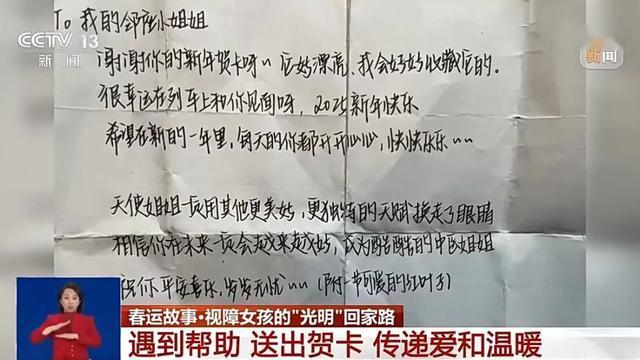 CCTV 13
新闻
新闻
To 我的邻座小姐姐
谢谢你的新年贺卡呀~ 它好漂亮、我会好好收藏它的。
很幸运在列车上和你见面呀，2025新年快乐
希望在新的一年里，每天的你都开开心心，快快乐乐~~
天使姐姐一定用其他更美好，更独特的天赋换走了眼睛
相信你在未来一定会越来越好，成为酷酷的中医姐姐
祝你平安喜乐，岁岁无忧~~（附一节可爱的红叶子）
春运故事·视障女孩的"光明"回家路
遇到帮助 送出贺卡 传递爱和温暖